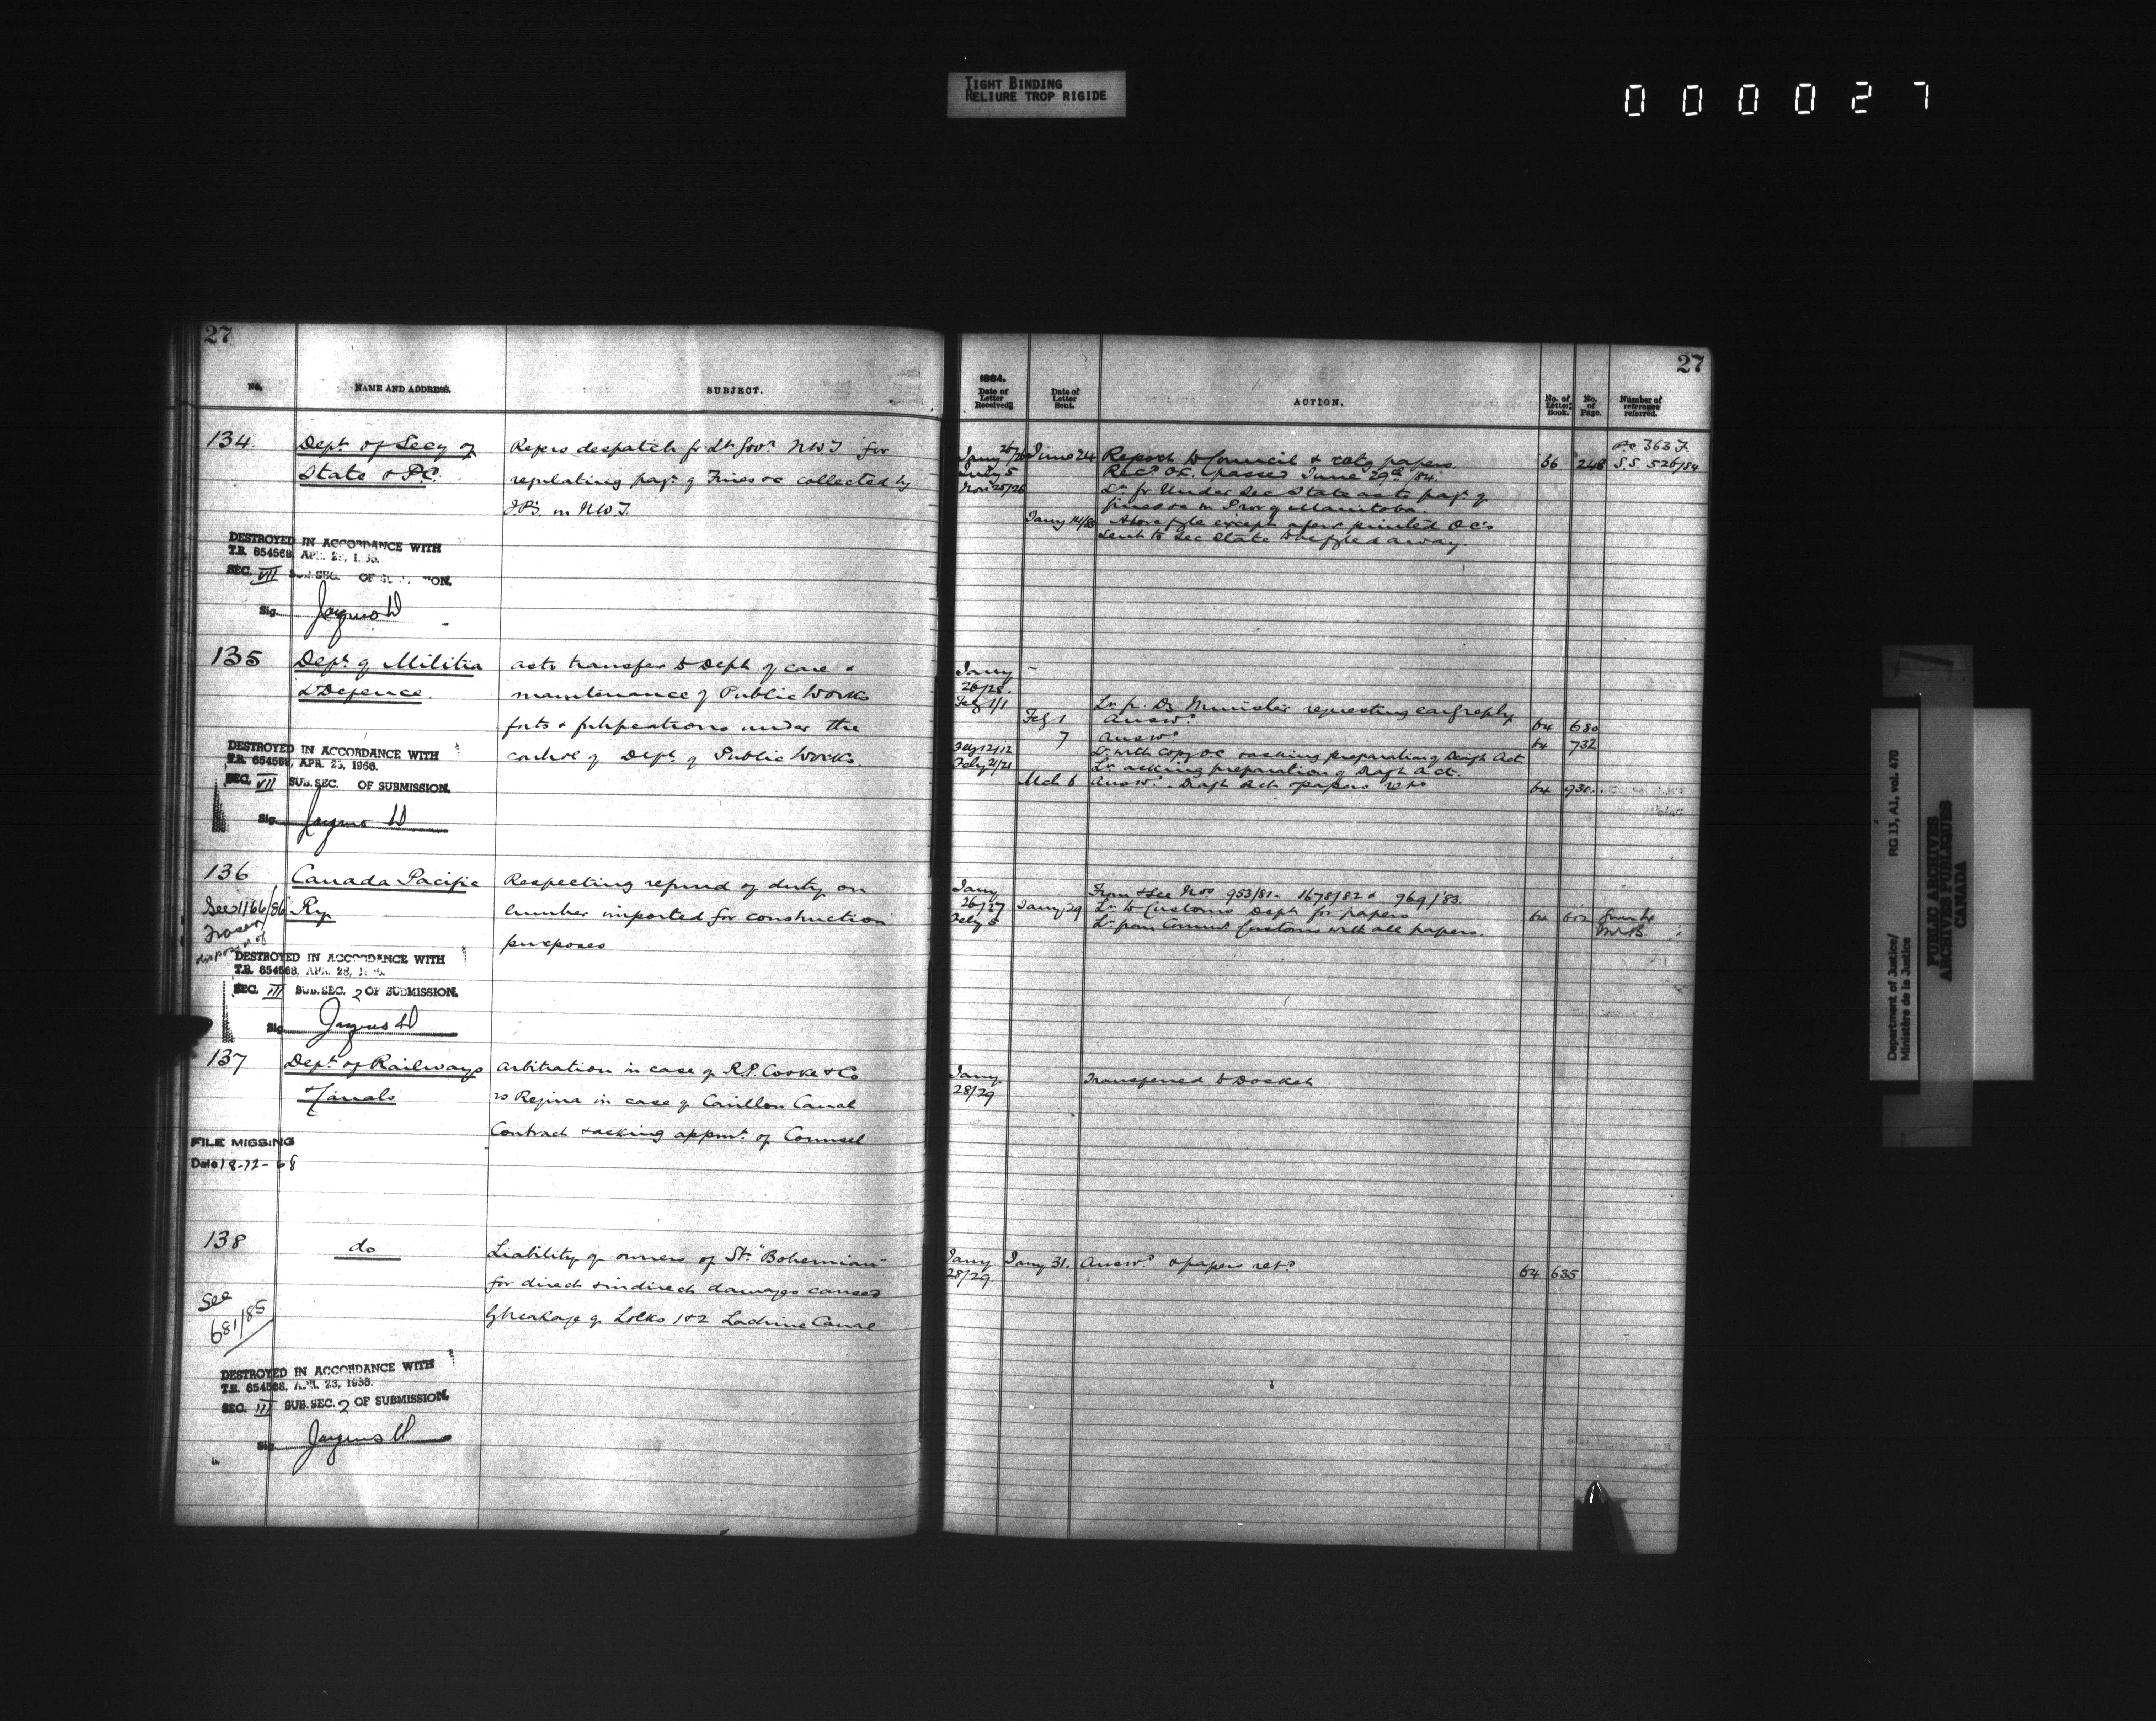 TIGHT BINDING
RELIURE TROP RIGIDE
000027
27
No.
NAME AND ADDRESS.
SUBJECT.
134
Dept. of Secy of
State & P.C.
Refers despatch fr Lt. Govr. N.W.T. for
regulating payt. of Fines &c collected by
J.P's. in N.W.T.
DESTROYED IN ACCORDANCE WITH
T.B. 654568, APR.
SEC. VII SUB.SEC. OF
Sig.
135
Dept. of Militia
& Defence
as to transfer to Dept. of care &
maintenance of Public Works
forts & fortifications under the
control of Dept. of Public Works
DESTROYED IN ACCORDANCE WITH
T.B. 654568, APR. 23, 1966.
SEC. VII SUB.SEC. OF SUBMISSION.
Sig.
136
Canada Pacific
Ry
See 1166/86
Respecting refund of duty on
lumber imported for construction
purposes
DESTROYED IN ACCORDANCE WITH
T.B. 654568, APR. 23,
SEC. III SUB.SEC. 2 OF SUBMISSION.
Sig.
137
Dept. of Railways
& Canals
Arbitration in case of R.P. Cooke & Co
vs Regina in case of Carillon Canal
Contract & asking appmt. of Counsel
FILE MISSING
Date 18-12-68
138
do
See
681/85
Liability of owners of Str. "Bohemian"
for direct & indirect damages caused
by breakage of Locks 1 & 2 Lachine Canal
DESTROYED IN ACCORDANCE WITH
T.B. 654568, APR. 23, 1966.
SEC. III SUB.SEC. 2 OF SUBMISSION.
Sig.
27
1884.
Date of Letter Received.
Date of Letter Sent.
ACTION.
No. of Letter Book.
No. of Page.
Number of reference referred.
P.C. 363 J
Jany 25/26 June 24 Report to Council & retg papers. 66 248 S.S. 526/84
July 5 Recd. O.C. (passed June 29th /84.
Novr 25/26 Lr. fr Under Sec State as to payt. of
fines &c in Prov of Manitoba.
Jany 14/85 Above file except above printed O.C's
sent to Sec State to be fyled away.
Jany
26/28.
Feby 1/1 Lr. fr. Dy Minister requesting early reply
Feby 1 Answd. 64 680
7 Answd. 64 732
Feby 12/12 Lr. with copy OC & asking preparation of Draft Act
Feby 21/21 Lr. asking preparation of Draft Act.
Mch 6 Answd. Draft Act & papers retd 64 930
Jany From & See Nos 953/81. 1678/82 & 969/83.
26/27 Jany 29 Lr. to Customs Dept. for papers 64 612
Feby 5 Lr. from Commr Customs with all papers.
Jany
28/29
Transferred to Docket
Jany Jany 31. Answd. & papers retd. 64 635
28/29.
Department of Justice/
Ministère de la Justice
RG 13, A1, vol. 470
PUBLIC ARCHIVES
ARCHIVES PUBLIQUES
CANADA